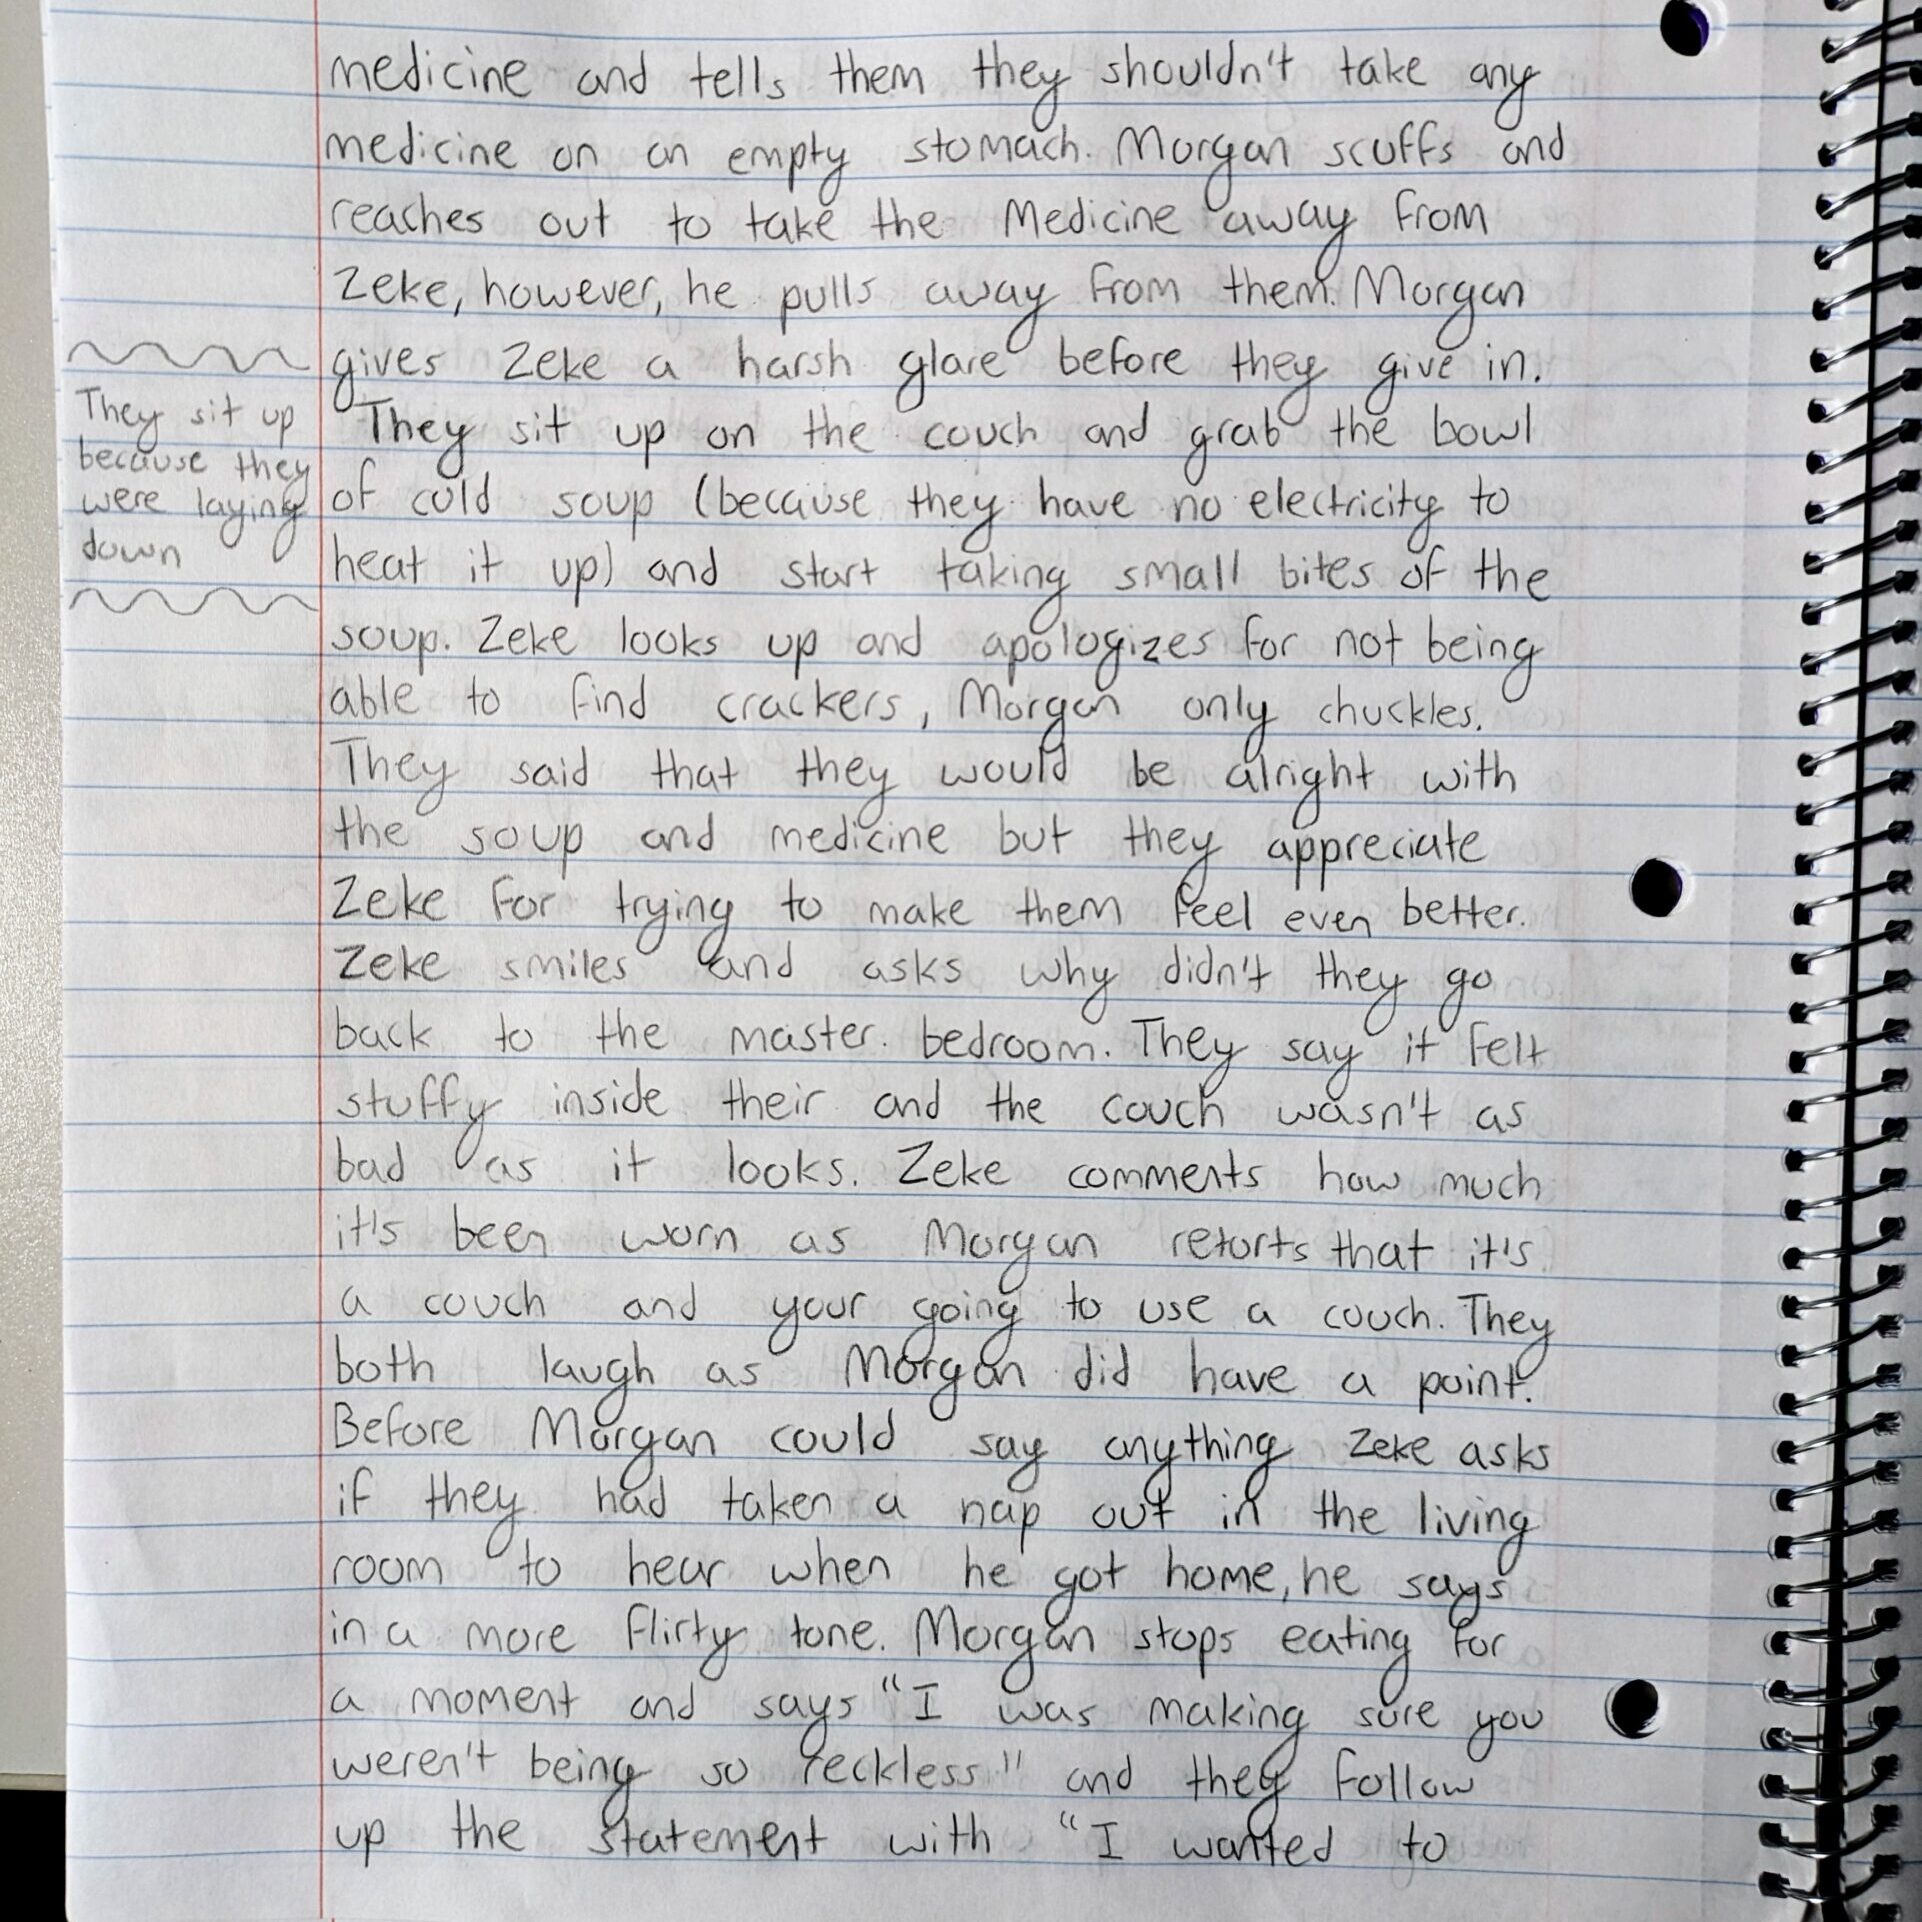 medicine and tells them they shouldn't take any
medicine on an empty stomach. Morgan scuffs and
reaches out to take the Medicine away from
Zeke, however, he pulls away from them. Morgan
gives Zeke a harsh glare before they give in.
They sit up on the couch and grab the bowl
of cold soup (because they have no electricity to
heat it up) and start taking small bites of the
soup. Zeke looks up and apologizes for not being
able to find crackers, Morgan only chuckles.
They said that they would be alright with
the soup and medicine but they appreciate
Zeke for trying to make them feel even better.
Zeke smiles and asks why didn't they go
back to the master bedroom. They say it felt
stuffy inside their and the couch wasn't as
bad as it looks. Zeke comments how much
it's been worn as Morgan retorts that it's
a couch and your going to use a couch. They
both laugh as Morgan did have a point.
Before Morgan could say anything Zeke asks
if they had taken a nap out in the living
room to hear when he got home, he says
in a more flirty tone. Morgan stops eating for
a moment and says "I was making sure you
weren't being so reckless" and they follow
up the statement with "I wanted to
They sit up
because they
were laying
down